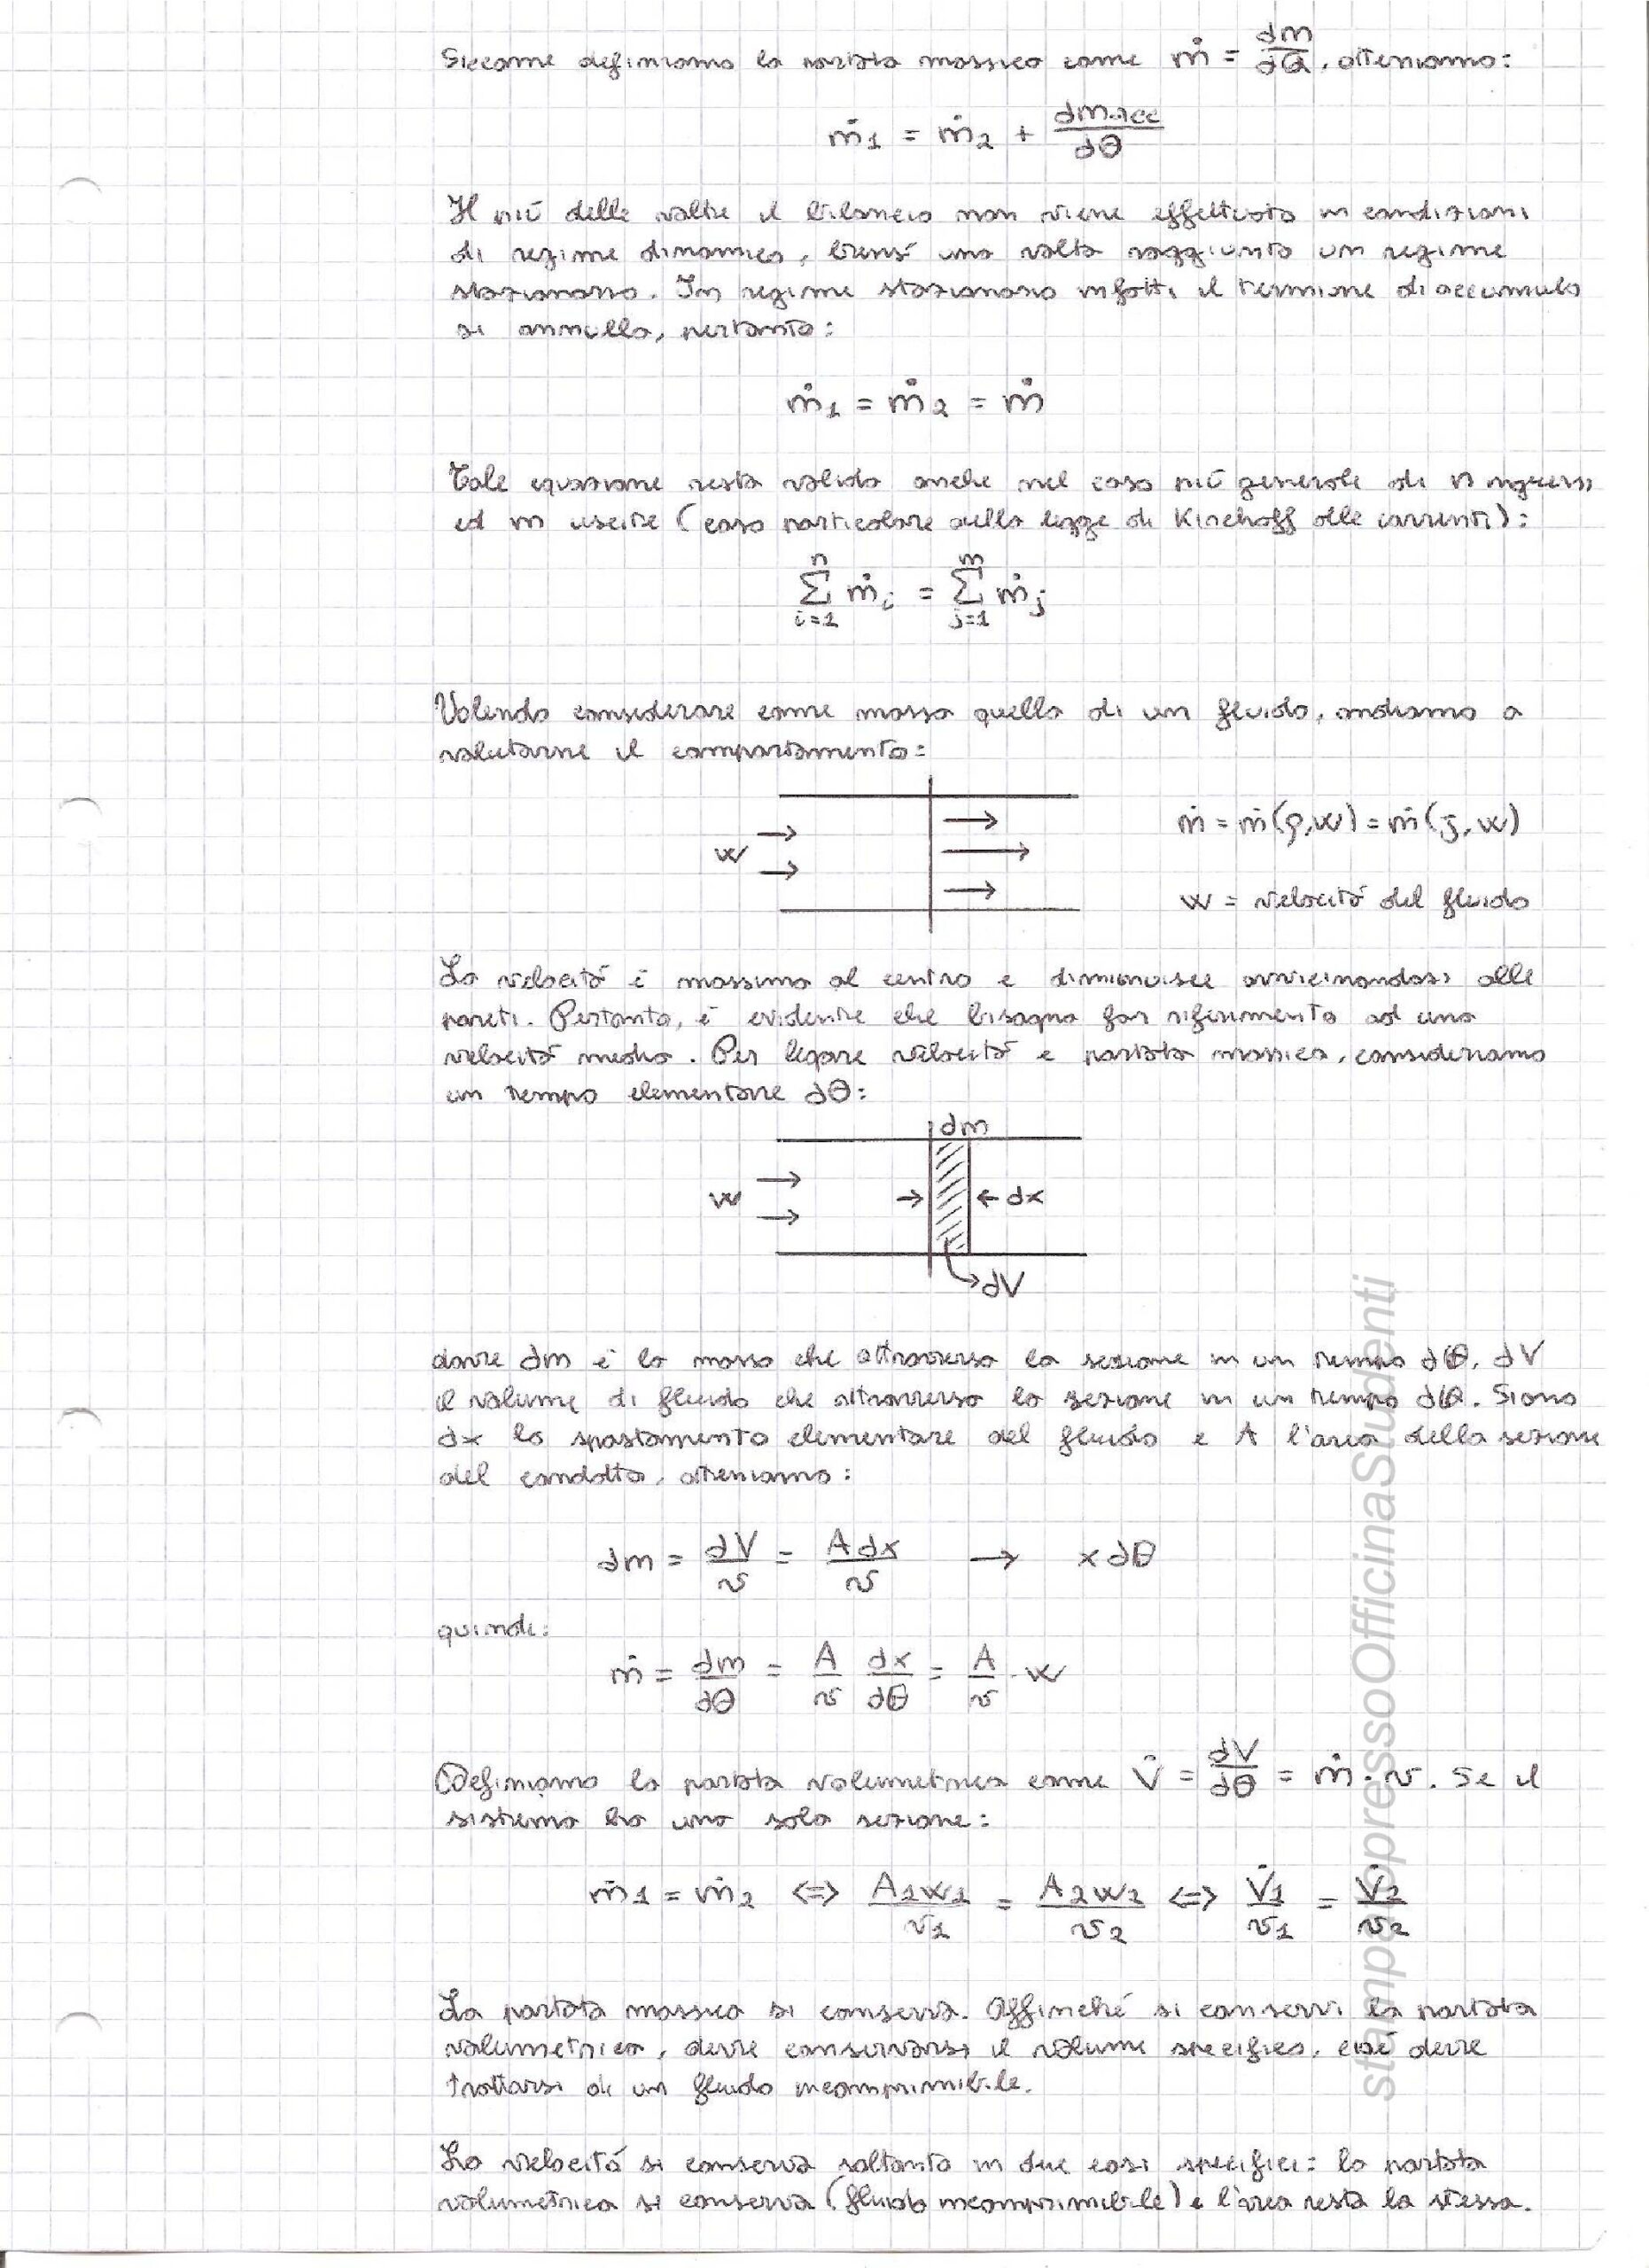 Siccome definiamo la portata massica come ṁ = dm/dθ, otteniamo:
ṁ1 = ṁ2 + dmacc/dθ
Il più delle volte il bilancio non viene effettuato in condizioni
di regime dinamico, bensì una volta raggiunto un regime
stazionario. In regime stazionario infatti il termine di accumulo
si annulla, pertanto:
ṁ1 = ṁ2 = ṁ
Tale equazione resta valida anche nel caso più generale di n ingressi
ed m uscite (caso particolare della legge di Kirchoff alle correnti):
n m
Σ ṁi = Σ ṁj
i=1 j=1
Volendo considerare come massa quella di un fluido, andiamo a
valutarne il comportamento:
ṁ = ṁ(ρ,w) = ṁ(J,w)
w
w = velocità del fluido
La velocità è massima al centro e diminuisce avvicinandosi alle
pareti. Pertanto, è evidente che bisogna far riferimento ad una
velocità media. Per legare velocità e portata massica, consideriamo
un tempo elementare dθ:
dm
w → ← dx
dV
dove dm è la massa che attraversa la sezione in un tempo dθ, dV
il volume di fluido che attraversa la sezione in un tempo dθ. Siano
dx lo spostamento elementare del fluido e A l'area della sezione
del condotto, otteniamo:
dm = dV/v = A dx/v → x dθ
quindi:
ṁ = dm/dθ = A/v dx/dθ = A/v · w
Definiamo la portata volumetrica come V̇ = dV/dθ = ṁ · v. Se il
sistema ha una sola sezione:
ṁ1 = ṁ2 <=> A1w1/v1 = A2w2/v2 <=> V̇1/v1 = V̇2/v2
La portata massica si conserva. Affinché si conservi la portata
volumetrica, deve conservarsi il volume specifico, cioè deve
trattarsi di un fluido incomprimibile.
La velocità si conserva soltanto in due casi specifici: la portata
volumetrica si conserva (fluido incomprimibile) e l'area resta la stessa.
stampatopressoOfficinaStudenti